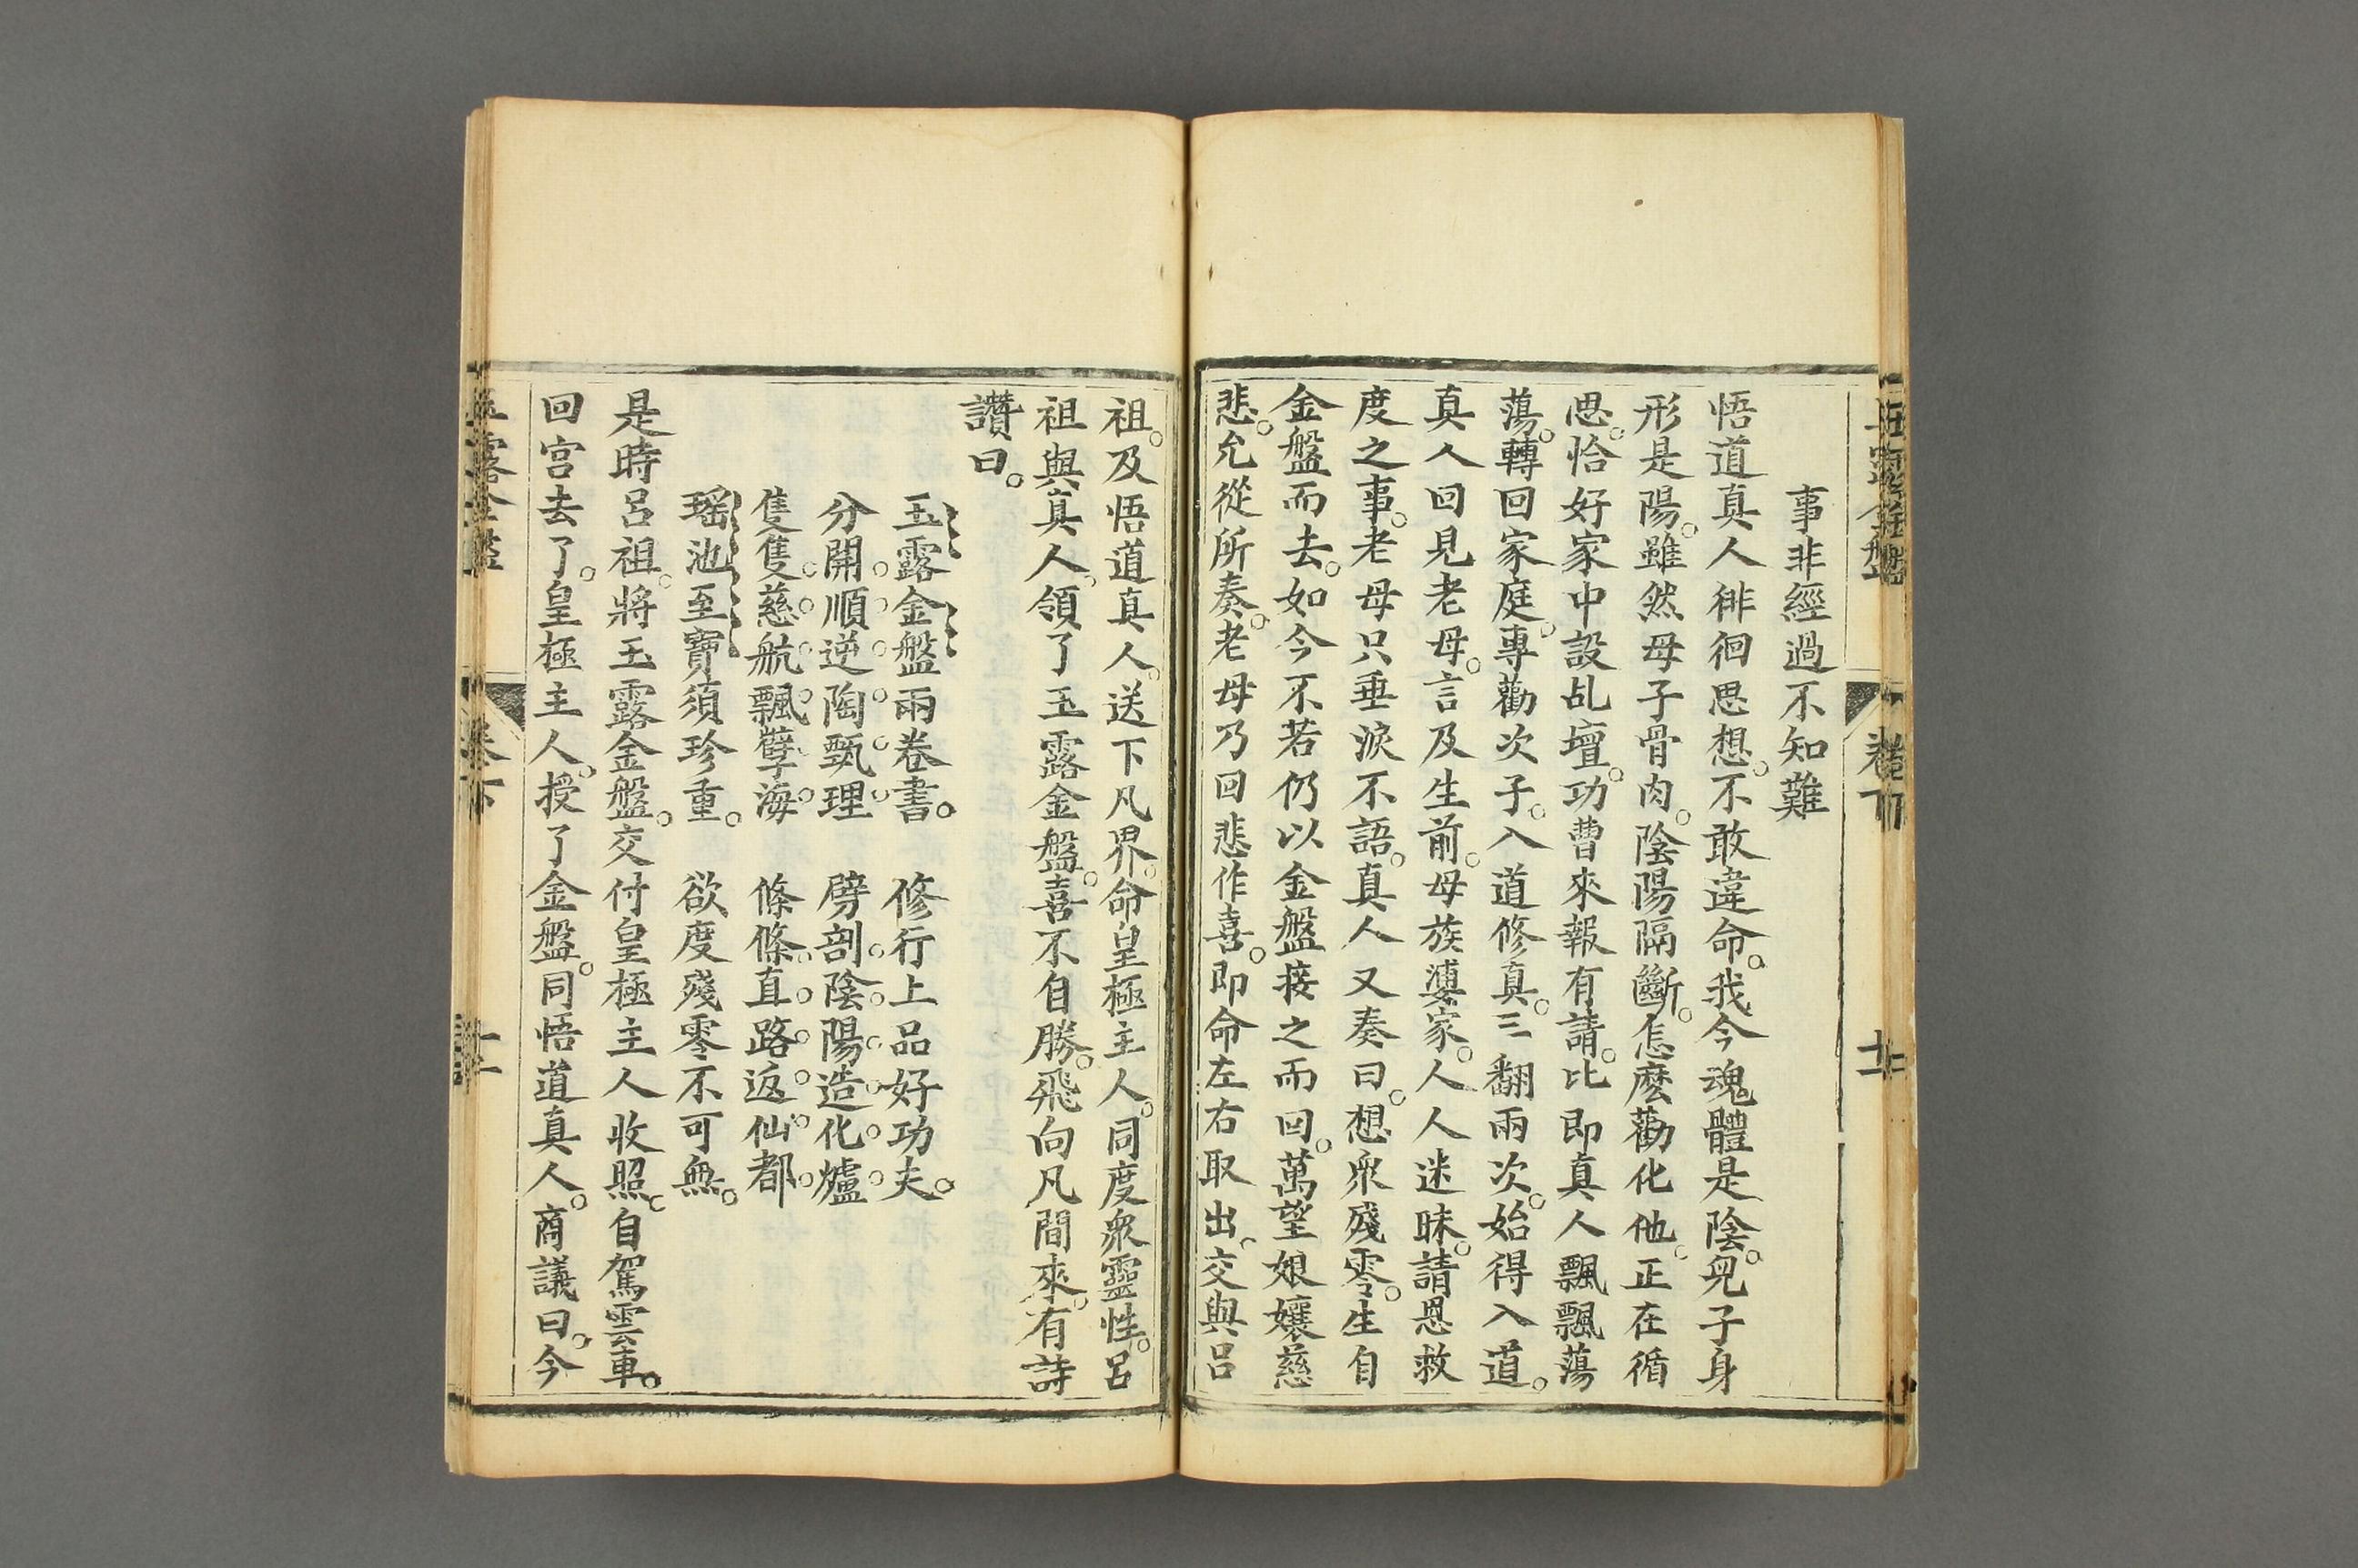 玉露金盤
卷下
十二
事非經過不知難
悟道真人徘徊思想。不敢違命。我今魂體是陰。兒子身
形是陽。雖然母子骨肉。陰陽隔斷。怎麽勸化他。正在循
思。恰好家中設乩壇。功曹來報有請。比即真人飄飄蕩
蕩。轉回家庭。專勸次子。入道修真。三翻兩次。始得入道。
真人回見老母。言及生前。母族婆家。人人迷昧。請恩救
度之事。老母只垂淚不語。真人又奏曰。想眾殘零。生自
金盤而去。如今不若仍以金盤接之而回。萬望娘孃慈
悲。允從所奏。老母乃回悲作喜。即命左右取出。交與呂
祖。及悟道真人。送下凡界。命皇極主人。同度眾靈性。呂
祖與真人。領了玉露金盤。喜不自勝。飛向凡間來。有詩
讚曰。
玉露金盤兩卷書。　修行上品好功夫。
分開順逆陶甄理　劈剖陰陽造化爐
隻隻慈航飄孽海　條條直路返仙都
瑤池至寶須珍重。　欲度殘零不可無。
是時呂祖。將玉露金盤。交付皇極主人收照。自駕雲車。
回宮去了。皇極主人。授了金盤。同悟道真人。商議曰。今
玉露金盤
卷下